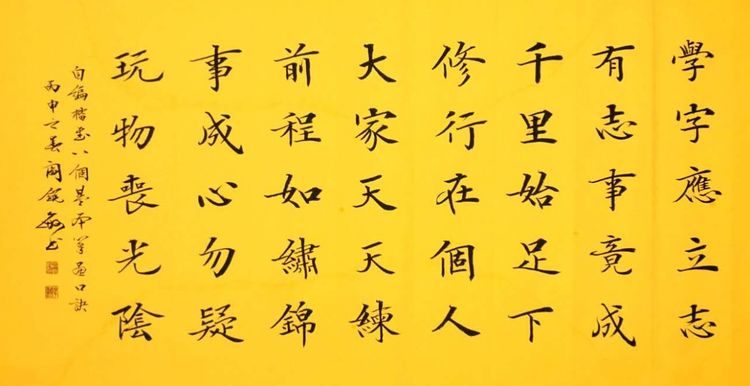 學字應立志
有志事竟成
千里始足下
修行在個人
大家天天練
前程如繡錦
事成心勿疑
玩物喪光陰
自編楷书八個基本笔画口訣
丙申之春閻銳敏书